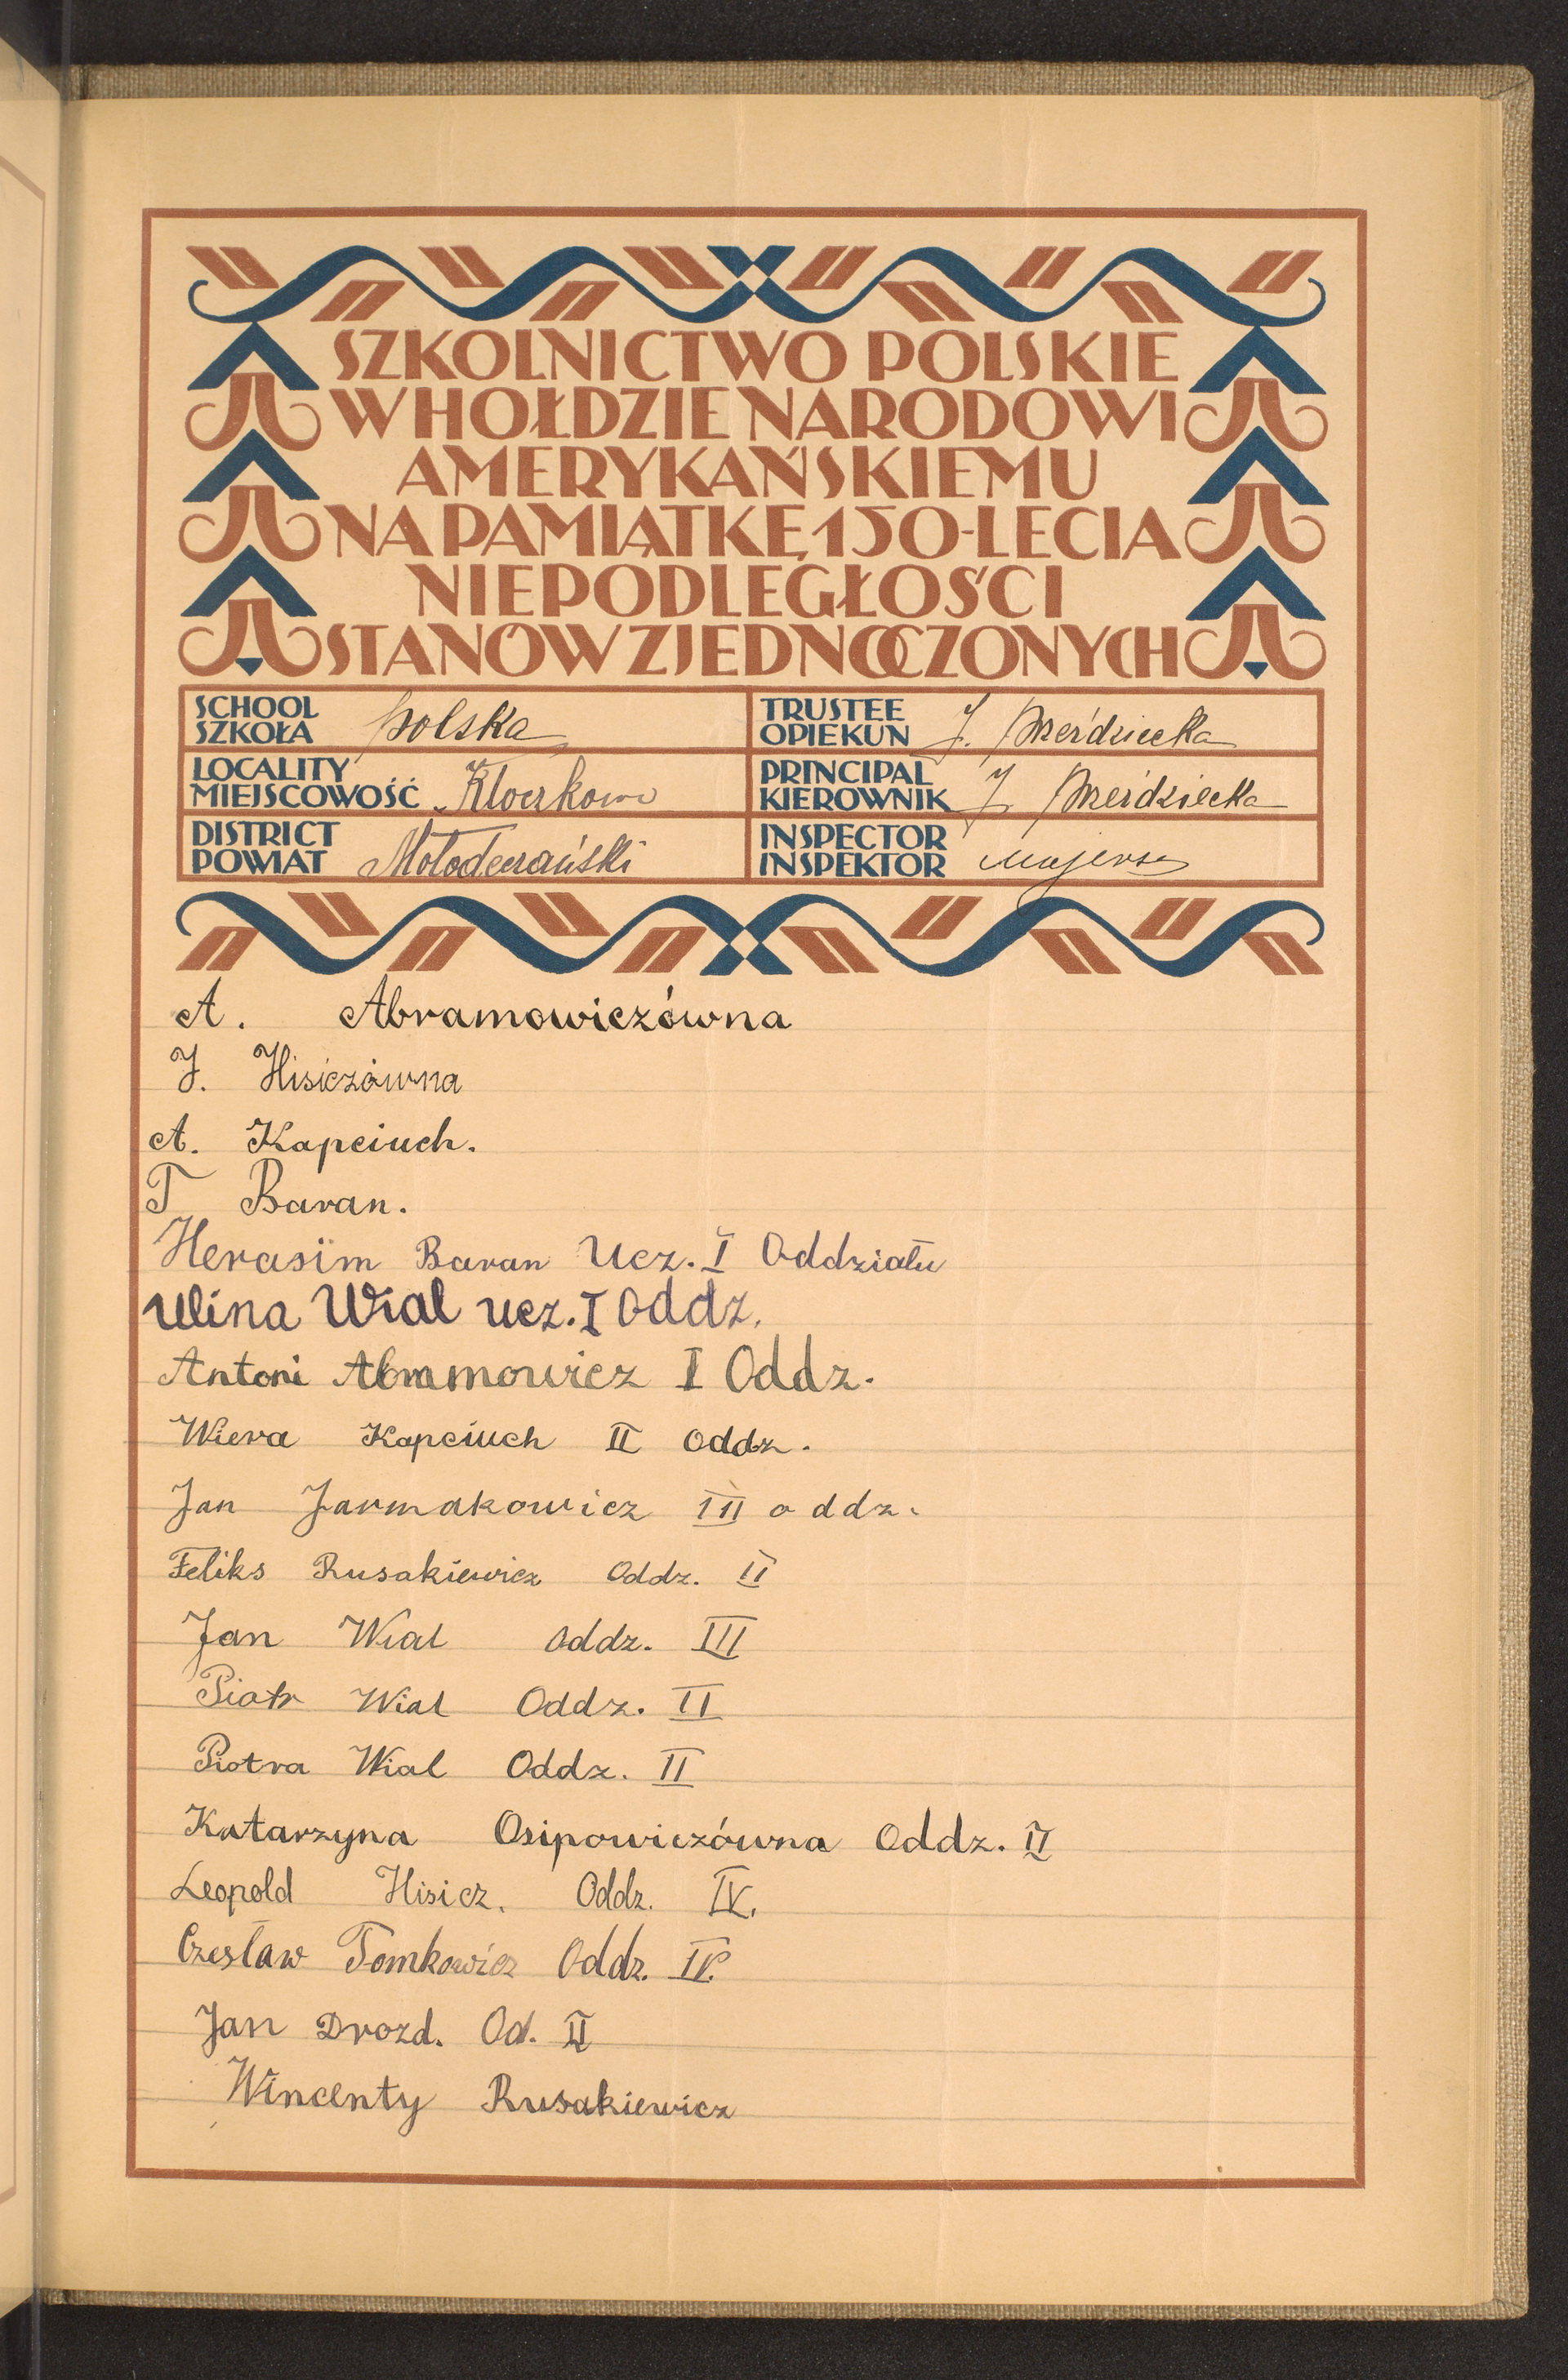 SZKOLNICTWO POLSKIE
W HOŁDZIE NARODOWI
AMERYKAŃSKIEMU
NA PAMIĄTKĘ 150-LECIA
NIEPODLEGŁOŚCI
STANÓW ZJEDNOCZONYCH
SCHOOL
SZKOŁA polska
TRUSTEE
OPIEKUN J.
LOCALITY
MIEJSCOWOŚĆ Kloczkowo
PRINCIPAL
KIEROWNIK J
DISTRICT
POWIAT Mołodeczański
INSPECTOR
INSPEKTOR
A. Abramowiczówna
J. Hisiczówna
A. Kapciuch.
T Baran.
Herasim Baran Ucz. I Oddziału
Ulina Wial ucz. I Oddz.
Antoni Abramowicz I Oddz.
Wiera Kapciuch II oddz.
Jan Jarmakowicz III oddz.
Feliks Rusakiewicz Oddz. II
Jan Wial Oddz. III
Piotr Wial Oddz. II
Piotra Wial Oddz. II
Katarzyna Osipowiczówna Oddz. II
Leopold Hisicz. Oddz. IV.
Czesław Tomkowicz Oddz. IV.
Jan Drozd. Od. II
Wincenty Rusakiewicz